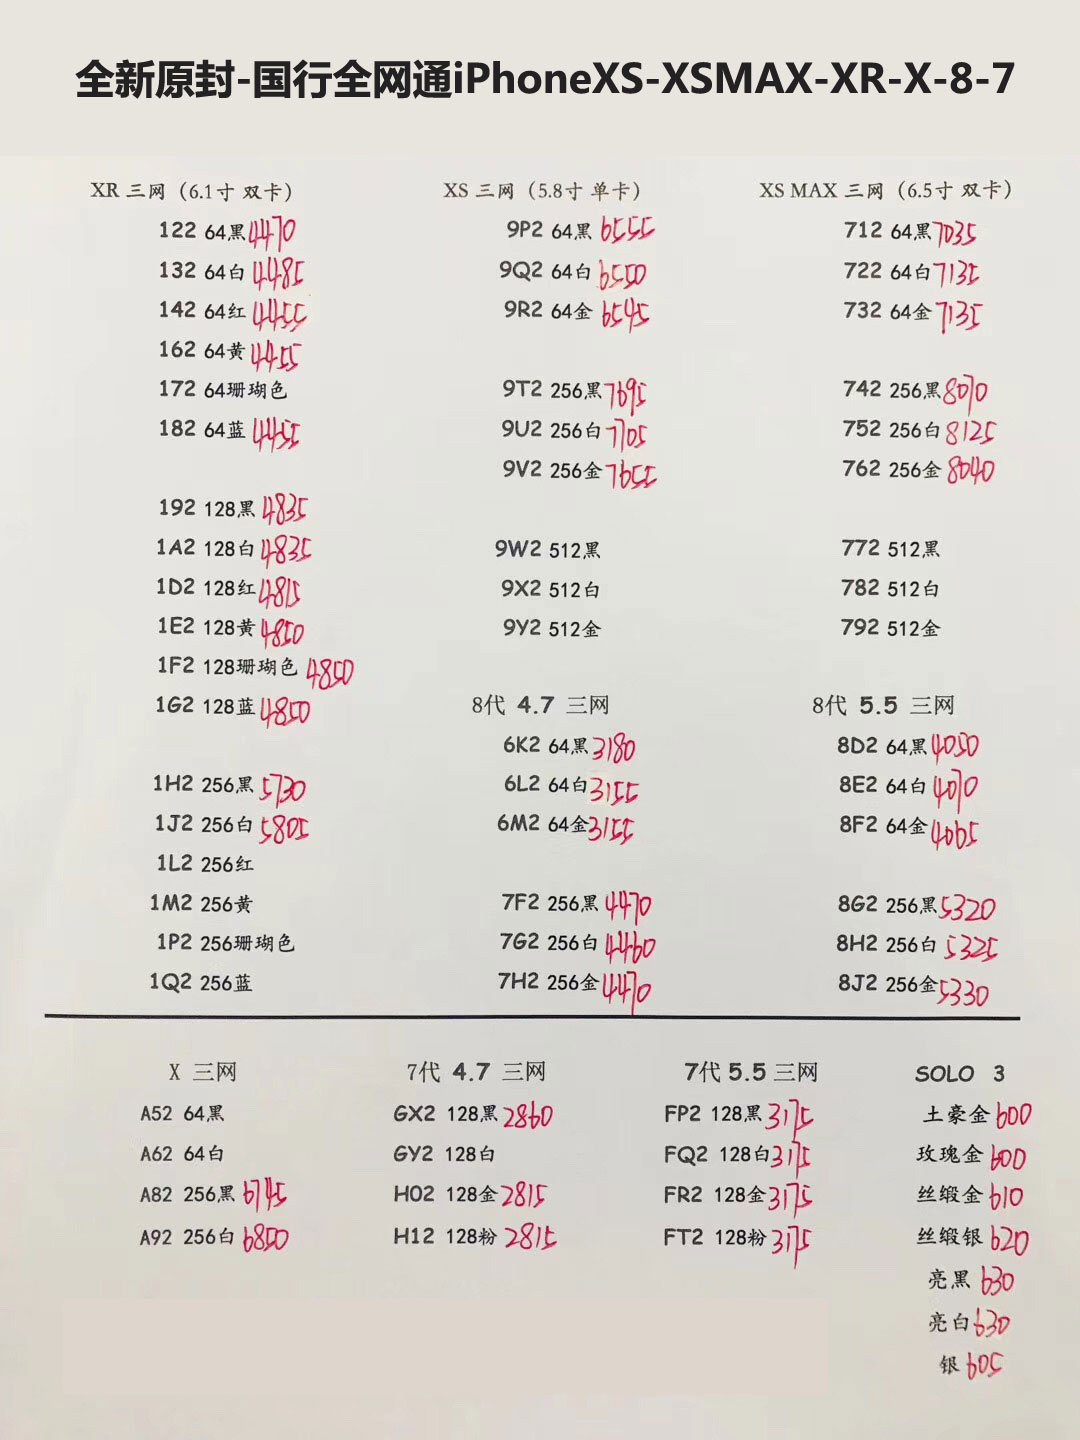 全新原封-国行全网通iPhoneXS-XSMAX-XR-X-8-7
XR 三网（6.1寸 双卡）
122 64黑 4470
132 64白 4485
142 64红 4455
162 64黄 4455
172 64珊瑚色
182 64蓝 4455
192 128黑 4835
1A2 128白 4835
1D2 128红 4815
1E2 128黄 4850
1F2 128珊瑚色 4850
1G2 128蓝 4850
1H2 256黑 5730
1J2 256白 5805
1L2 256红
1M2 256黄
1P2 256珊瑚色
1Q2 256蓝
XS 三网（5.8寸 单卡）
9P2 64黑 6555
9Q2 64白 6550
9R2 64金 6545
9T2 256黑 7695
9U2 256白 7705
9V2 256金 7655
9W2 512黑
9X2 512白
9Y2 512金
8代 4.7 三网
6K2 64黑 3180
6L2 64白 3155
6M2 64金 3155
7F2 256黑 4470
7G2 256白 4460
7H2 256金 4470
XS MAX 三网（6.5寸 双卡）
712 64黑 7035
722 64白 7135
732 64金 7135
742 256黑 8070
752 256白 8125
762 256金 8040
772 512黑
782 512白
792 512金
8代 5.5 三网
8D2 64黑 4050
8E2 64白 4070
8F2 64金 4065
8G2 256黑 5320
8H2 256白 5325
8J2 256金 5330
X 三网
A52 64黑
A62 64白
A82 256黑 6745
A92 256白 6850
7代 4.7 三网
GX2 128黑 2860
GY2 128白
H02 128金 2815
H12 128粉 2815
7代 5.5 三网
FP2 128黑 3175
FQ2 128白 3175
FR2 128金 3175
FT2 128粉 3175
SOLO 3
土豪金 600
玫瑰金 600
丝缎金 610
丝缎银 620
亮黑 630
亮白 630
银 605